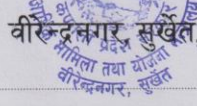 वीरेन्द्रनगर, सुर्खेत
प्रदेश
मामिला तथा योजना
वीरेन्द्रनगर, सुर्खेत